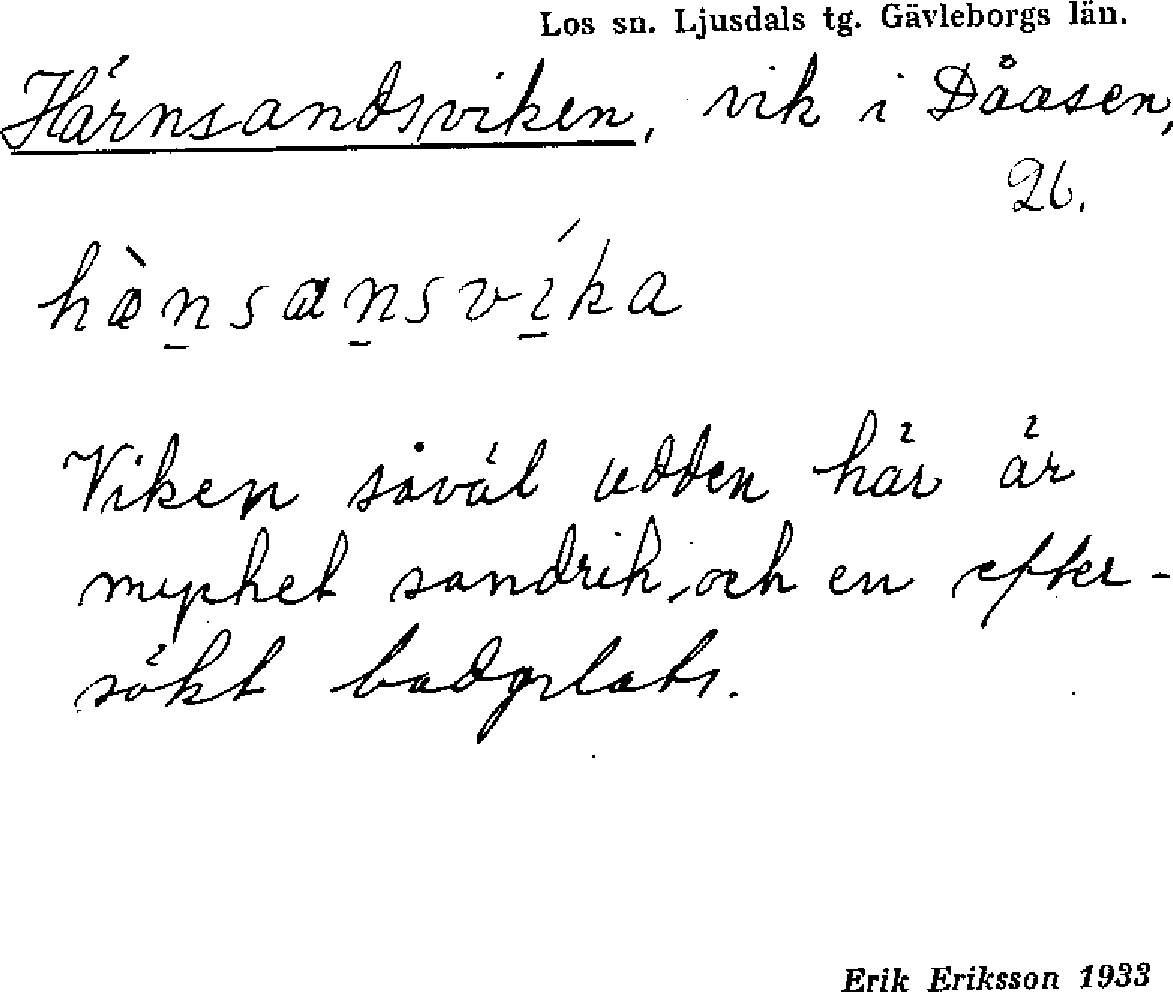 Los sn. Ljusdals tg. Gävleborgs län.
Härnsandsviken, vik i Dåasen,
26.
hæ̀n̠sαn̠sví̠ka
Viken såväl udden här är
mycket sandrik, och en efter-
sökt badplats.
Erik Eriksson 1933